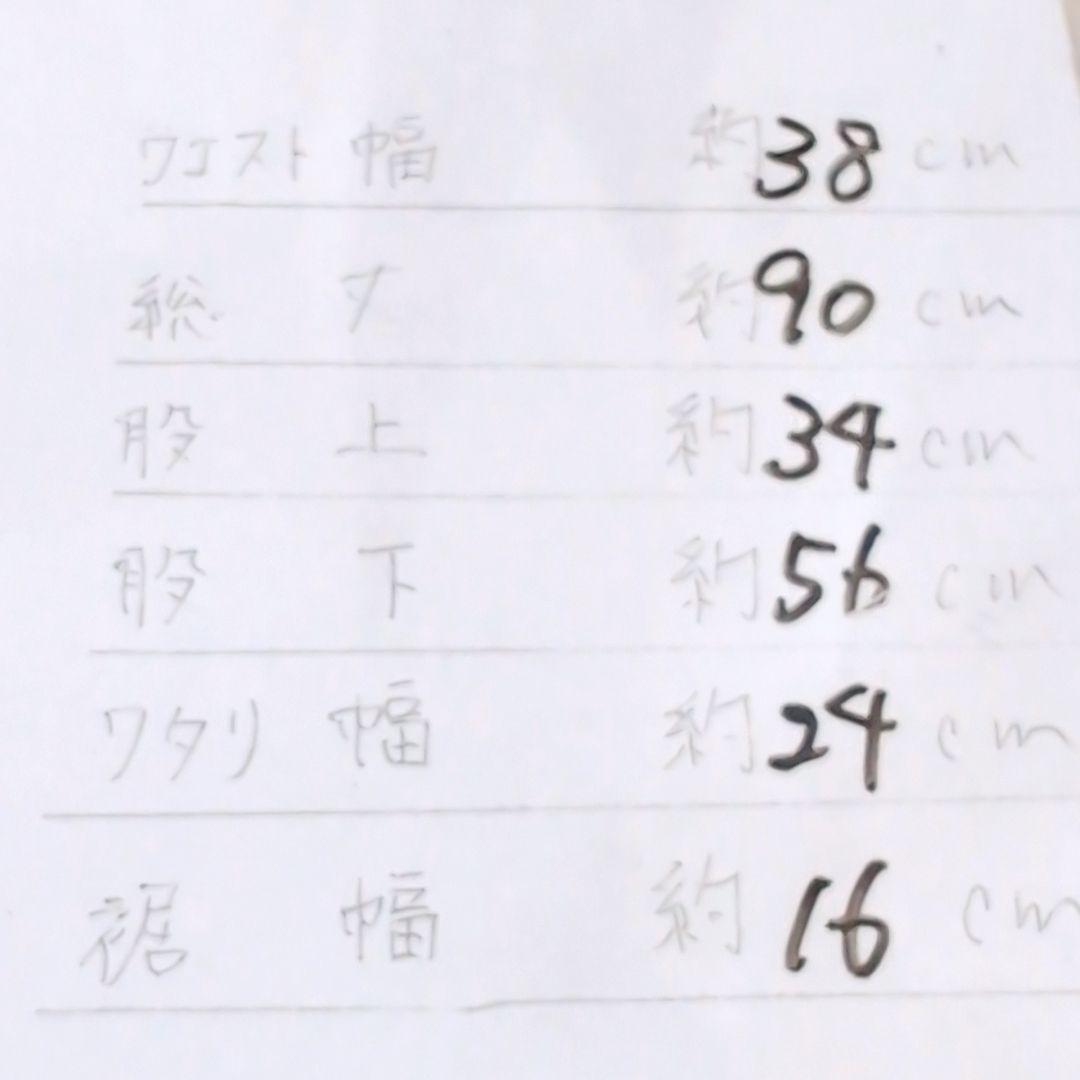 ウエスト 幅 約38cm
総 丈 約90cm
股 上 約34cm
股 下 約56cm
ワタリ 幅 約24cm
裾 幅 約16cm